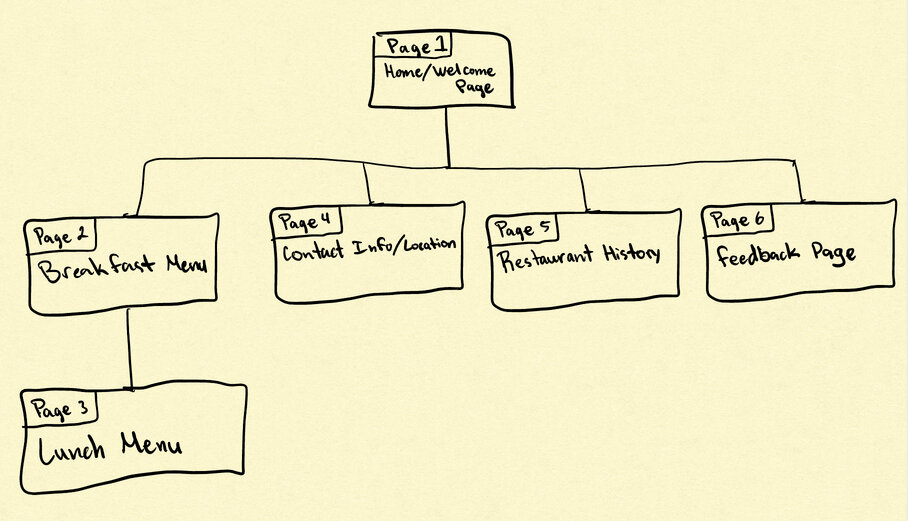 Page 1
Home/Welcome
Page
Page 2
Breakfast Menu
Page 4
Contact Info/Location
Page 5
Restaurant History
Page 6
Feedback Page
Page 3
Lunch Menu